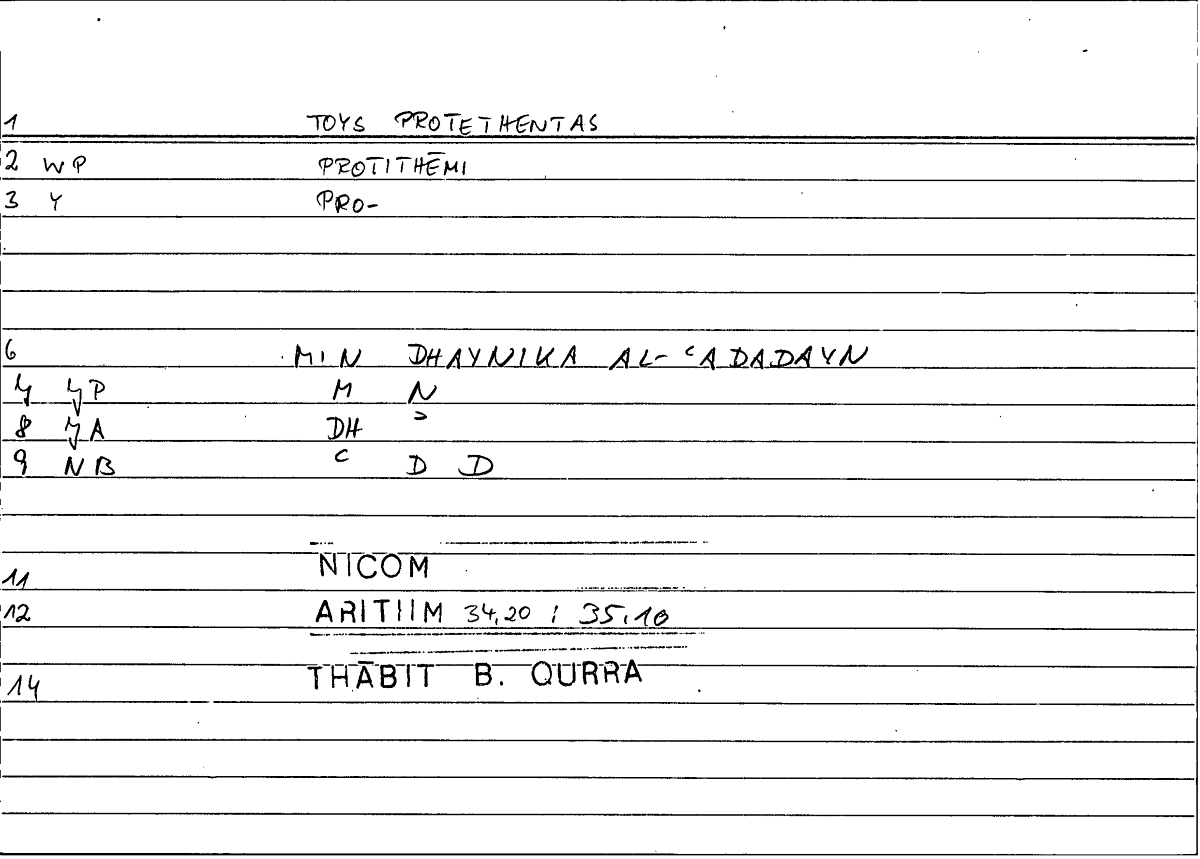 1 TOYS PROTETHENTAS
2 WP PROTITHĒMI
3 Y PRO-
6 MIN DHAYNIKA AL-ʿADADAYN
7 7P M N
8 7A DH ʾ
9 NB ʿ D D
NICOM
11
12 ARITIIM 34,20 ; 35,10
THĀBIT B. QURRA
14